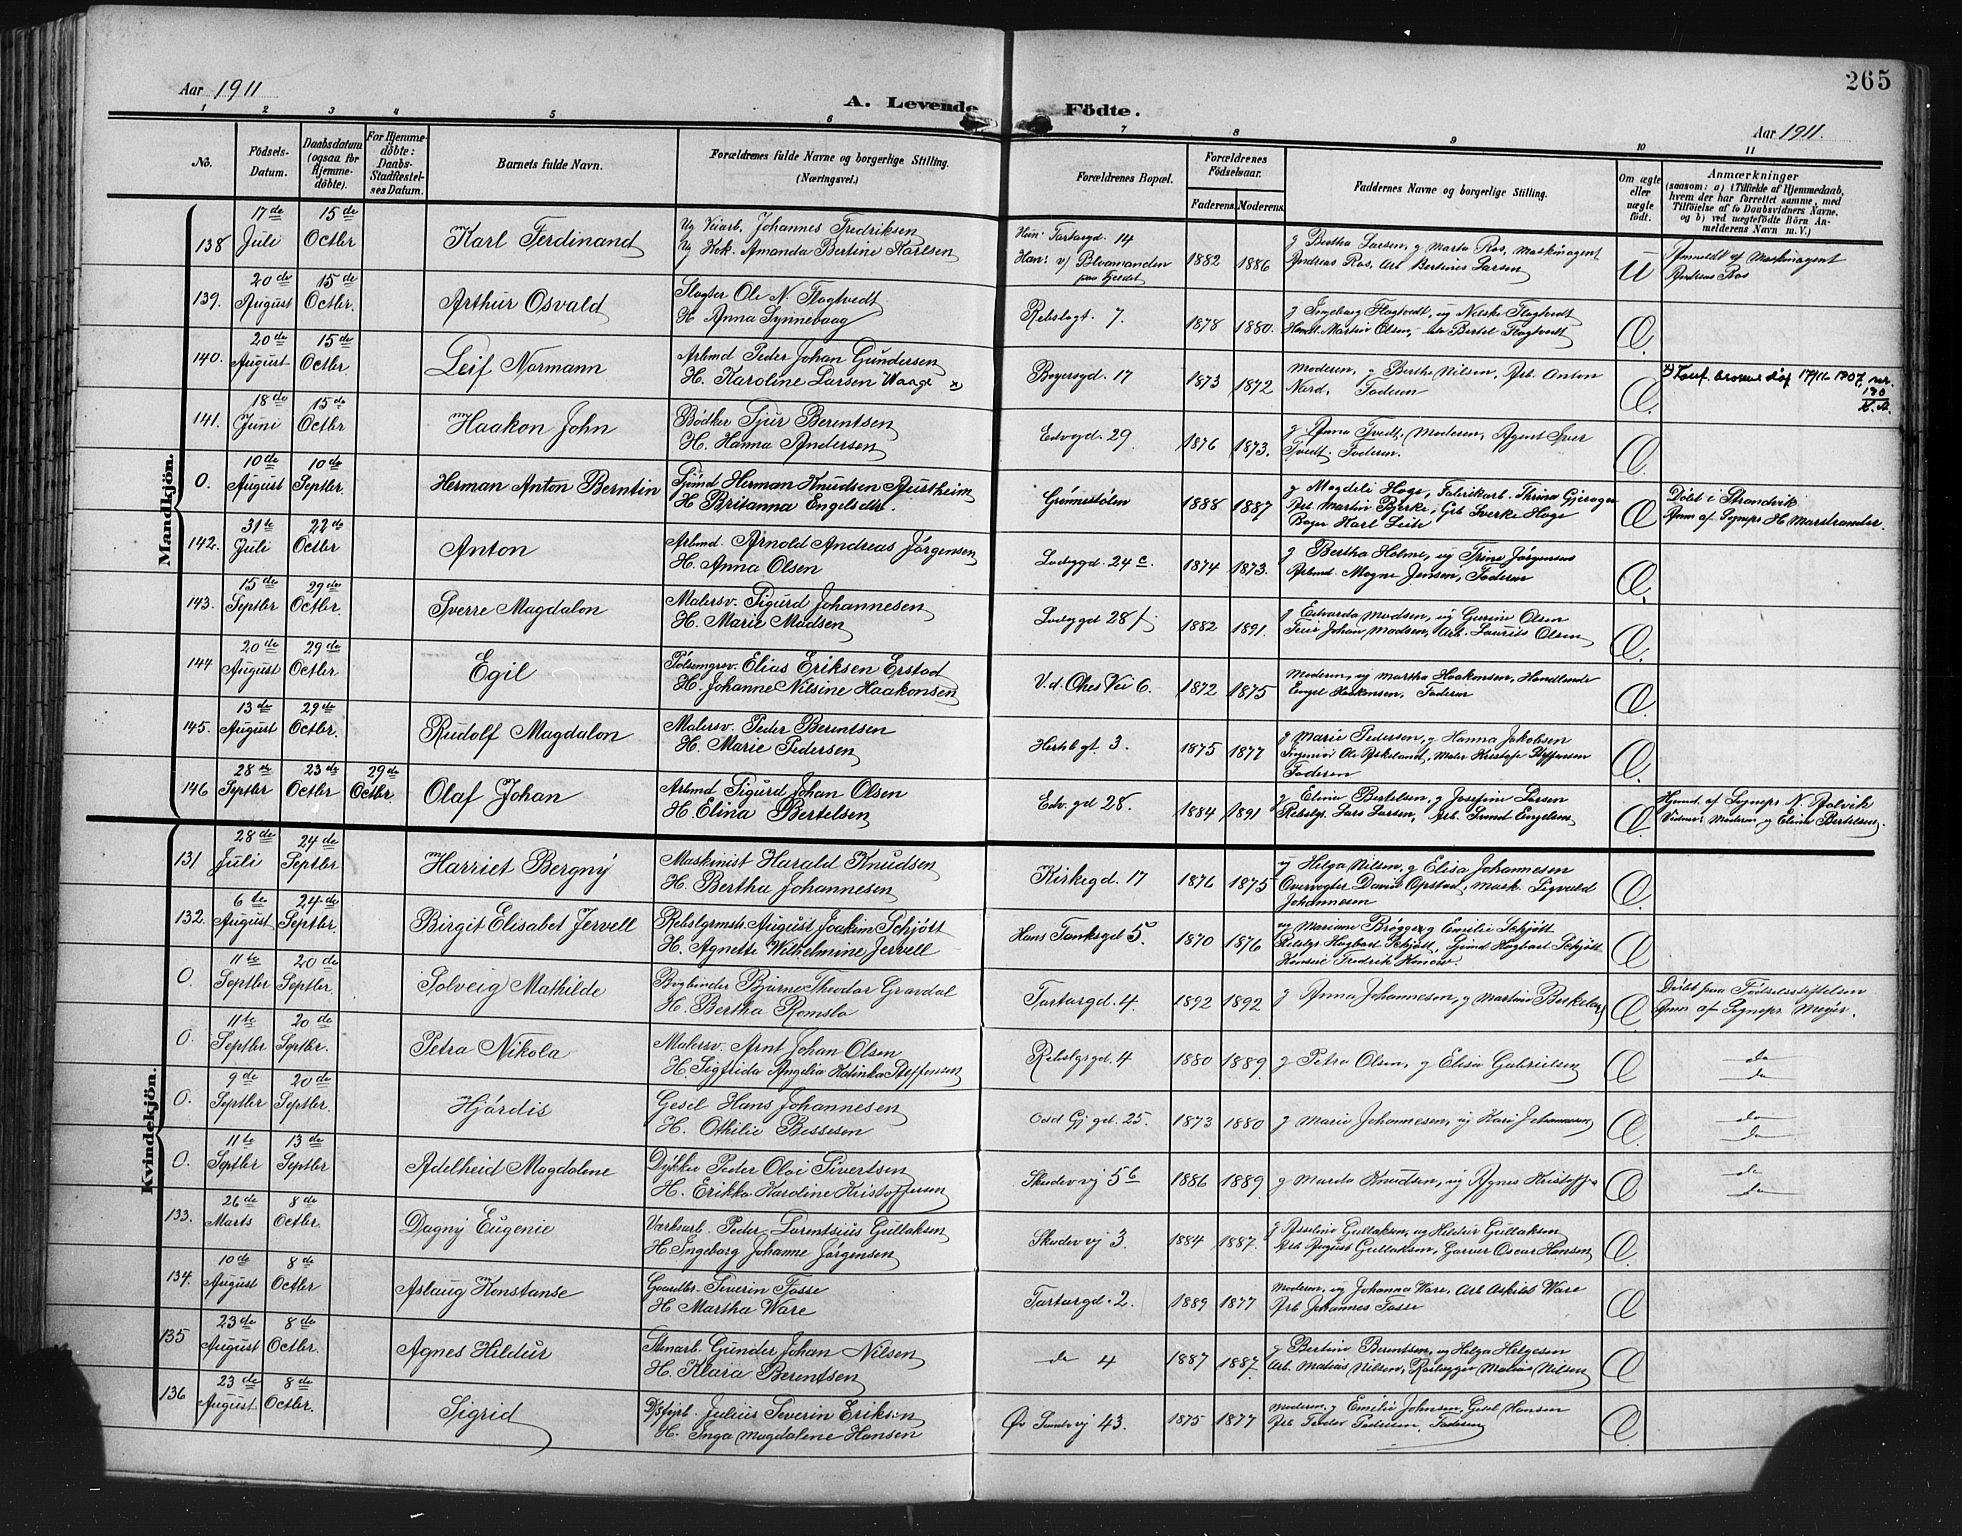 265
Aar 1911
A. Levende Födte.
Aar 1911.
1 2 3 4 5 6 7 8 9 10 11
No.
Födsels-Datum.
Daabsdatum (ogsaa for Hjemmedöbte).
For Hjemmedöbte: Daabs-Stadfæstelses Datum.
Barnets fulde Navn.
Forældrenes fulde Navne og borgerlige Stilling.
(Næringsvei.)
Forældrenes Bopæl.
Forældrenes Födselsaar.
Faderens. Moderens.
Faddernes Navne og borgerlige Stilling.
Om ægte eller uægte födt.
Anmærkninger
(saasom: a) i Tilfælde af Hjemmedaab, hvem der har forrettet samme, med Tilföielse af to Daabsvidners Navne, og b) ved uægtefödte Börn Anmelderens Navn m. V.)
Mandkjön.
138 17de Juli 15de Octbr Karl Ferdinand
Ug Veiarb. Johannes Fredriksen
Ug Hok. Amanda Bertine Karlsen
Hun: Tartargd. 14
Han: v/ Blaamanden
1882 1886
g Bertha Larsen, g Marta Ros, Maskinagent
Andreas Ros, Arb Bertines Larsen
U
Anmeldt af Maskinagent
Andreas Ros
139. 20de August 15de Octbr. Arthur Osvald
Slagter Ole N. Flogtvedt
H Anna Synnevaag
Rebslagt. 7. 1878 1880.
g Ingeborg Flogtvedt, ug Nilske Flogtvedt
Handl. Martin Olsen, Bertel Flogtvedt
Æ.
140. 20de August 15de Octbr Leif Normann
Arbmd Peder Johan Gundersen
H. Karoline Larsen Waage x
Beyersgd. 17 1873 1872
Moderen, g Berthe Nilsen, Arb. Anton
Nord, Faderen
Æ.
190
K.A.
141. 18de Juni 15de Octbr Haakon John
Bödker Sjur Berentsen
H. Hanna Andersen
Edvgd. 29 1876 1873.
g Anna Tvedt, Moderen, Agent Iver
Tvedt, Faderen.
Æ.
0. 10de August 10de Septbr. Herman Anton Berntin
Sjömd Herman Knudsen Austheim
H Britanna Engelsdtr.
Grönnestölen 1888 1887
g Magdeli Hage, Fabrikarb. Thrina Gjerager
Arb Martin Bjerke, Grb Sverke Hage
Bager Karl Leite
Æ
Döbt i Strandvik
Anm af Sognepr H. Marstrander.
142. 31te Juli 22de Octbr Anton
Arbmd. Arnold Andreas Jörgensen
H. Anna Olsen
Ladegd. 24 c. 1874 1873.
g Bertha Holme, ug Trine Jörgensen
Arbmd Mogne Jensen, Faderen
Æ.
143. 15de Septbr 29de Octbr. Sverre Magdalon
Malersv. Sigurd Johannesen
H. Marie Madsen
Ladegd 28 f 1882 1891.
g Edvarda Madsen, ug Gurine Olsen
Johan Madsen, Arb. Laurits Olsen
Æ.
144 20de August 29de Octbr Egil
Pölsemgrv. Elias Eriksen Erstad
H. Johanne Nilsine Haakonsen
V.d. Ohes Vei 6. 1872 1875
Moderen, ug Martha Haakonsen, Handlende
Engel Haakonsen, Faderen
Æ.
145. 13de August 29de Octbr. Rudolf Magdalon
Malersv. Peder Berentsen
H. Marie Pedersen
gt. 3. 1875 1877
g Marie Pedersen, g Hanna Jakobsen
Ingeniör Ole Askeland, Maler Kristoffe Steffensen
Faderen
Æ.
146 28de Septbr 23de Octbr 29de Octbr Olaf Johan
Arbmd Sigurd Johan Olsen
H. Elina Bertelsen
Edv. gd 28. 1884 1891
g Eline Bertelsen, g Josefine Larsen
Rebslgr. Lars Larsen, Arb. Engelsen
Æ.
Hjemd. af Sognepr N. Aalvik
Vidner: Moderen, g Eline Bertelsen.
Kvindekjön.
131 28de Juli 24de Septbr Harriet Bergný
Maskinist Harald Knudsen
H. Bertha Johannesen
Kirkegd. 17 1876 1875
ug Helga Nilsen, g Elisa Johannesen
Overvogter David Opstad, Mask Sigvald
Johannesen
Æ.
132. 6te August 24de Septbr. Birgit Elisabet Jervell
Rebslgrmstr. August Joakim Schjött
H. Agnette Wilhelmine Jervell
Hans Tanksgd 5. 1870 1876
ug Mariane Brögger, g Emilie Schjött
Rebslgr Hagbart Schjött, Sjömd Hagbart Schjött
Fredrik Konow
Æ
0 11te Septbr 20de Septbr. Solveig Mathilde
Bogbinder Bjarne Theodor Gravdal
H. Bertha Romslo
Tartargd. 4. 1892 1892
g Anna Johannesen, g Martine Berkeland
Æ
Döbt paa Födselsstiftelsen
Anm af Sognepr Meyer.
0. 11te Septbr 20de Septbr. Petra Nikola
Malersv. Arnt Johan Olsen
H. Sigfrida Angelia Katinka Steffensen
Rebslgrgd. 4 1880 1889
g Petra Olsen, g Elisa Gabrielsen
Æ
do
do
0. 9de Septbr 20de Septbr. Hjördis
Gesel Hans Johannesen
H. Othilie Bessesen
Odd Gj gd. 25. 1873 1880
g Marie Johannesen, ug Kari Johannesen
Æ.
do
do
0. 11te Septbr 13de Septbr Adelheid Magdalene
Dykker Peder Olai Sivertsen
H. Erikka Karoline Kristoffersen
Skudevvj 5 b 1886 1889
g Marda Knudsen, ug Agnes Kristoffs
Æ
do
do
133. 26de Marts 8de Octbr. Dagný Eugenie
Værksarb. Peder Lorentsius Gullaksen
H. Ingeborg Johanne Jörgensen
Skudevvj 3. 1884 1887.
g Asseline Gullaksen, ug Hildur Gullaksen
Arb August Gullaksen, Garver Oscar Hansen
Æ.
134. 10de August 8de Octbr Aslaug Konstanse
Gaardbr. Severin Fosse
H Martha Ware
Tartargd. 2. 1889 1877
Moderen, ug Johanna Ware, Arb Askild Ware
Arb Johannes Fosse
Æ
135 23de August 8de Octbr. Agnes Hildur
Stenarb. Gunder Johan Nilsen
H. Klara Berentsen
do 4 1887 1887.
g Bertine Berentsen, ug Helga Helgesen
Arb. Matias Nilsen, Matias Nilsen
Æ
136 23de August 8de Octbr. Sigrid
Julius Severin Eriksen
H. Inga Magdalene Hansen
Öv Sandvvj 43. 1875 1877
Moderen, g Emilie Johnsen, Gesel Hansen
Arb Teodor Pedersen, Faderen
Æ.